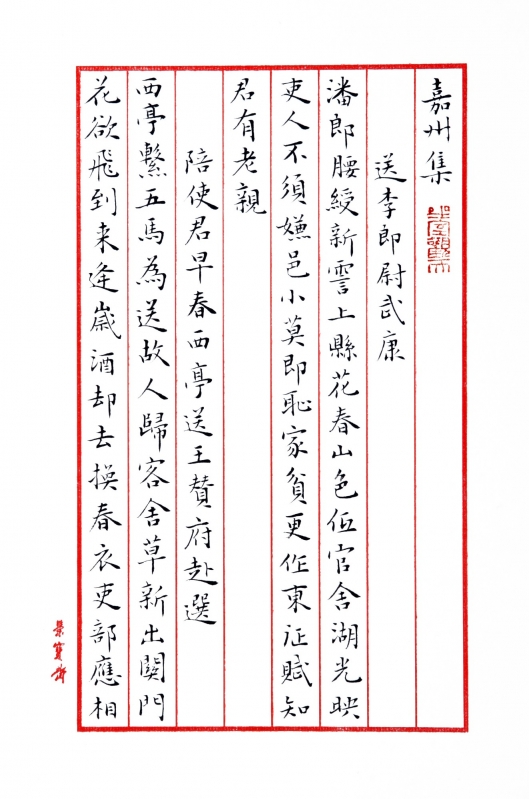 嘉州集
送李郎尉武康
潘郎腰綬新霅上縣花春山色低官舍湖光映
吏人不須嫌邑小莫即恥家貧更作東征賦知
君有老親
陪使君早春西亭送王贊府赴選
西亭繫五馬為送故人歸客舍草新出關門
花欲飛到来逢歲酒却去換春衣吏部應相
榮寶齋